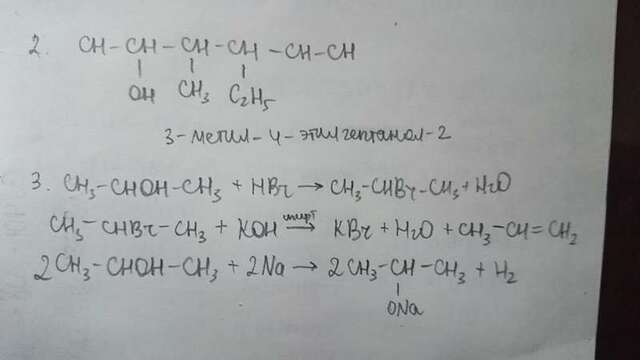 2. CH-CH-CH-CH-CH-CH
OH CH₃ C₂H₅
3-метил-4-этилгептанол-2
3. CH₃-CHOH-CH₃ + HBr → CH₃-CHBr-CH₃ + H₂O
CH₃-CHBr-CH₃ + KOH спирт → KBr + H₂O + CH₃-CH=CH₂
2CH₃-CHOH-CH₃ + 2Na → 2CH₃-CH-CH₃ + H₂
ONa